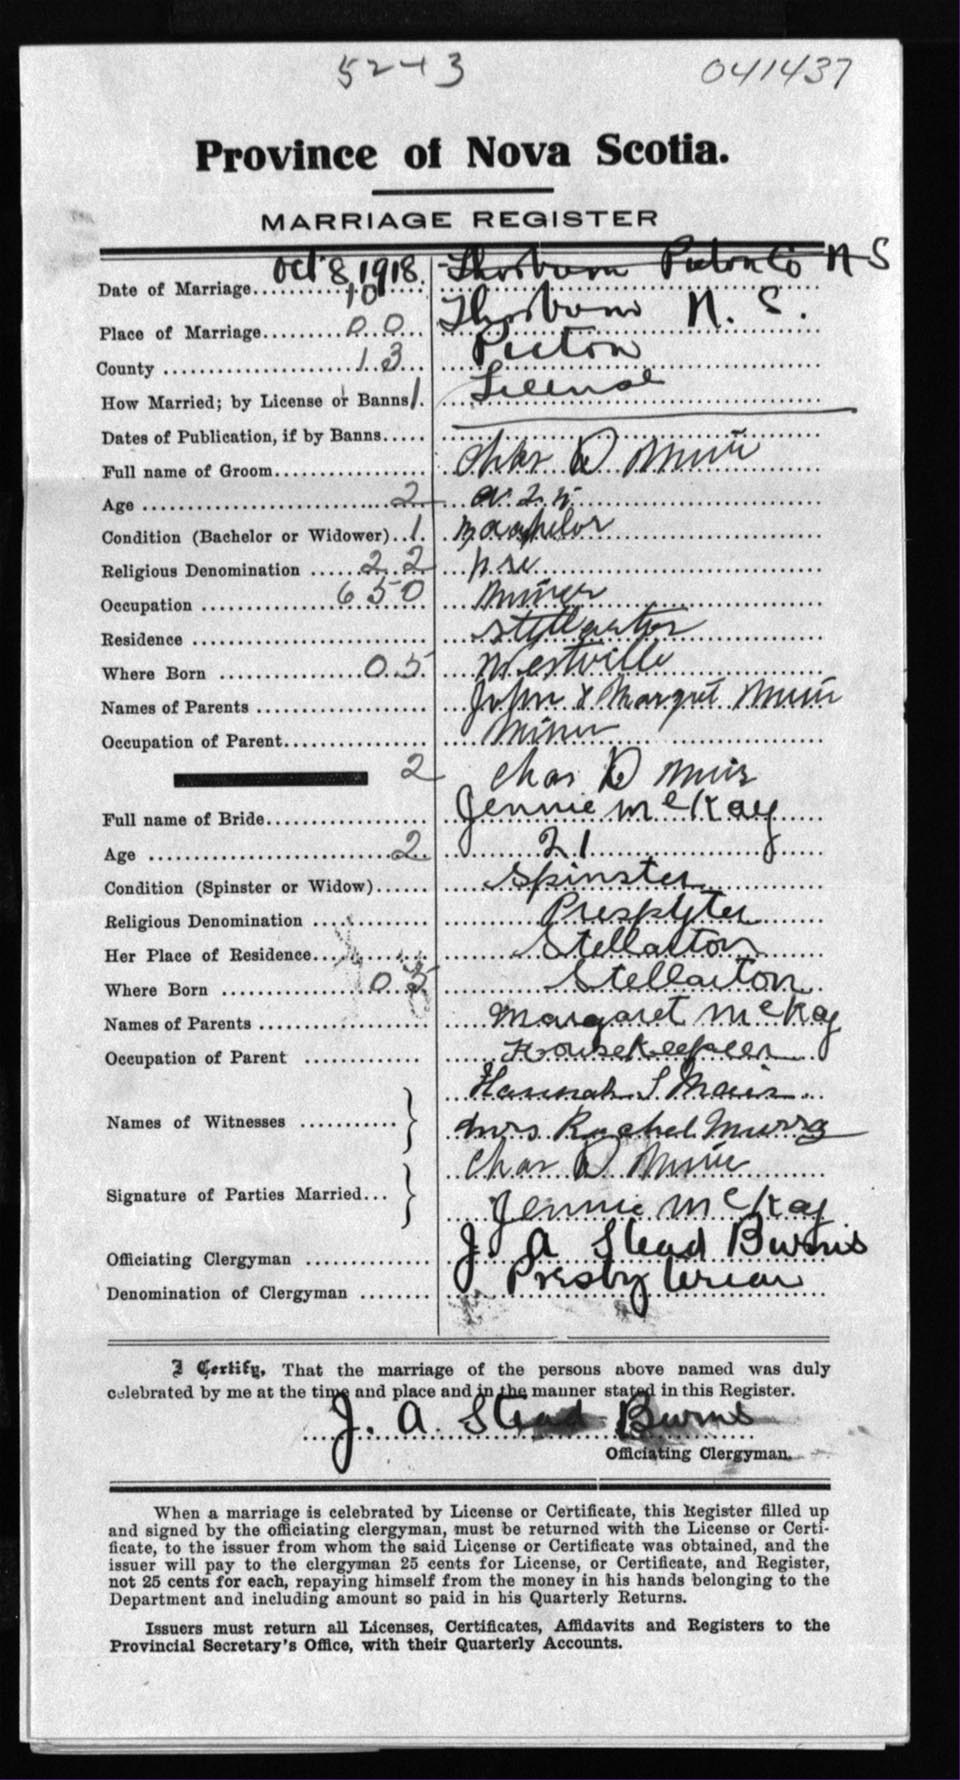 52-13
041437
Province of Nova Scotia.
MARRIAGE REGISTER
Date of Marriage Oct 8, 1918. Thorburn Pictou Co N S
10
Place of Marriage 0 0 Thorburn N. S.
County 1 3 Pictou
How Married; by License or Banns 1. License
Dates of Publication, if by Banns
Full name of Groom Chas D Muir
Age 2
Condition (Bachelor or Widower) 1. Bachelor
Religious Denomination 2 2 Pre
Occupation 650 Miner
Residence Stellarton
Where Born 0 5 Westville
Names of Parents John & Margret Muir
Occupation of Parent Miner
2 Chas D Muir
Full name of Bride Jennie McKay
Age 2 21
Condition (Spinster or Widow) Spinster
Religious Denomination Presbyter
Her Place of Residence Stellarton
Where Born 0 5 Stellarton
Names of Parents Margaret McKay
Occupation of Parent Housekeeper
Hannah S Muir
Names of Witnesses
Mrs Rachel Murray
Chas D Muir
Signature of Parties Married
Jennie McKay
Officiating Clergyman J. A Stead Burns
Denomination of Clergyman Presbyterian
I Certify, That the marriage of the persons above named was duly
celebrated by me at the time and place and in the manner stated in this Register.
J. A. Stead Burns
Officiating Clergyman.
When a marriage is celebrated by License or Certificate, this Register filled up
and signed by the officiating clergyman, must be returned with the License or Certi-
ficate, to the issuer from whom the said License or Certificate was obtained, and the
issuer will pay to the clergyman 25 cents for License, or Certificate, and Register,
not 25 cents for each, repaying himself from the money in his hands belonging to the
Department and including amount so paid in his Quarterly Returns.
Issuers must return all Licenses, Certificates, Affidavits and Registers to the
Provincial Secretary's Office, with their Quarterly Accounts.